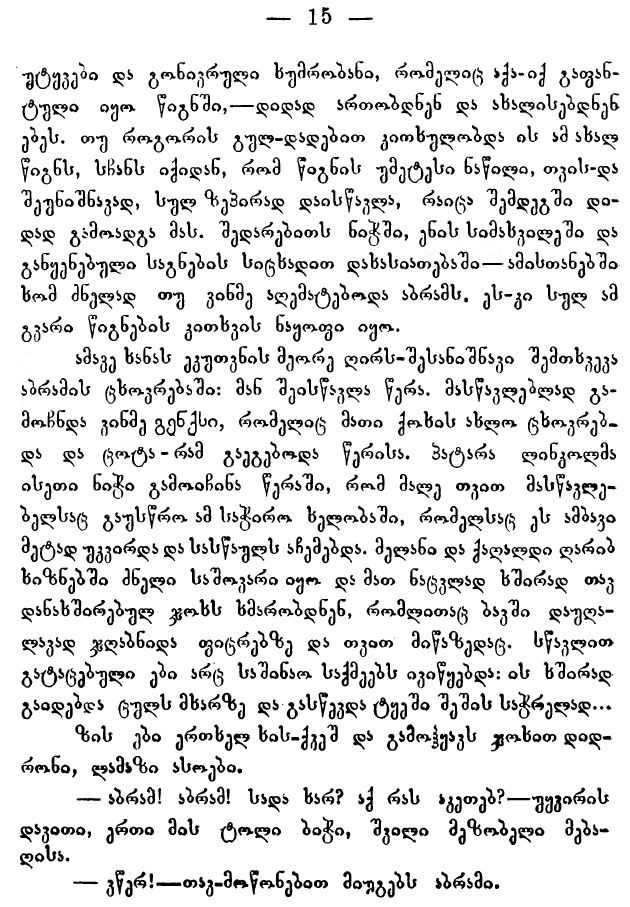 — 15 —
უტყვები და გონივრული ხუმრობანი, რომელიც აქა-იქ გაფან-
ტული იყო წიგნში,—დიდად ართობდნენ და ახალისებდნენ
ებეს. თუ როგორის გულ-დადებით კითხულობდა ის ამ ახალ
წიგნს, სჩანს იქიდან, რომ წიგნის უმეტესი ნაწილი, თვის-და
შეუნიშნავად, სულ ზეპირად დაისწავლა, რაიცა შემდეგში დი-
დად გამოადგა მას. შედარებითს ნიჭში, ენის სიმახვილეში და
განყენებული საგნების სიცხადით დახასიათებაში—ამისთანებში
ხომ ძნელად თუ ვინმე აღემატებოდა აბრამს. ეს-კი სულ ამ
გვარი წიგნების კითხვის ნაყოფი იყო.
ამავე ხანას ეკუთვნის მეორე ღირს-შესანიშნავი შემთხვევა
აბრამის ცხოვრებაში: მან შეისწავლა წერა. მასწავლებლად გა-
მოჩნდა ვინმე გენქსი, რომელიც მათი ქოხის ახლო ცხოვრებ-
და და ცოტა-რამ გაეგებოდა წერისა. პატარა ლინკოლმა
ისეთი ნიჭი გამოიჩინა წერაში, რომ მალე თვით მასწავლე-
ბელსაც გაუსწრო ამ საჭირო ხელობაში, რომელსაც ეს ამბავი
მეტად უკვირდა და სასწაულს აჩემებდა. მელანი და ქაღალდი ღარიბ
ხიზნებში ძნელი საშოვარი იყო და მათ ნაცვლად ხშირად თავ
დანახშირებულ ჯოხს ხმარობდნენ, რომლითაც ბავში დაუღა-
ლავად ჯღაბნიდა ფიცრებზე და თვით მიწაზედაც. სწავლით
გატაცებული ები არც საშინაო საქმეებს ივიწყებდა: ის ხშირად
გაიდებდა ცულს მხარზე და გასწევდა ტყეში შეშის საჭრელად...
ზის ები ერთხელ ხის-ქვეშ და გამოჰყავს ჯოხით დიდ-
რონი, ლამაზი ასოები.
— აბრამ! აბრამ! სადა ხარ? აქ რას აკეთებ?—უყვირის
დავითი, ერთი მის ტოლი ბიჭი, შვილი მეზობელი მება-
ღისა.
— ვწერ!—თავ-მოწონებით მიუგებს აბრამი.